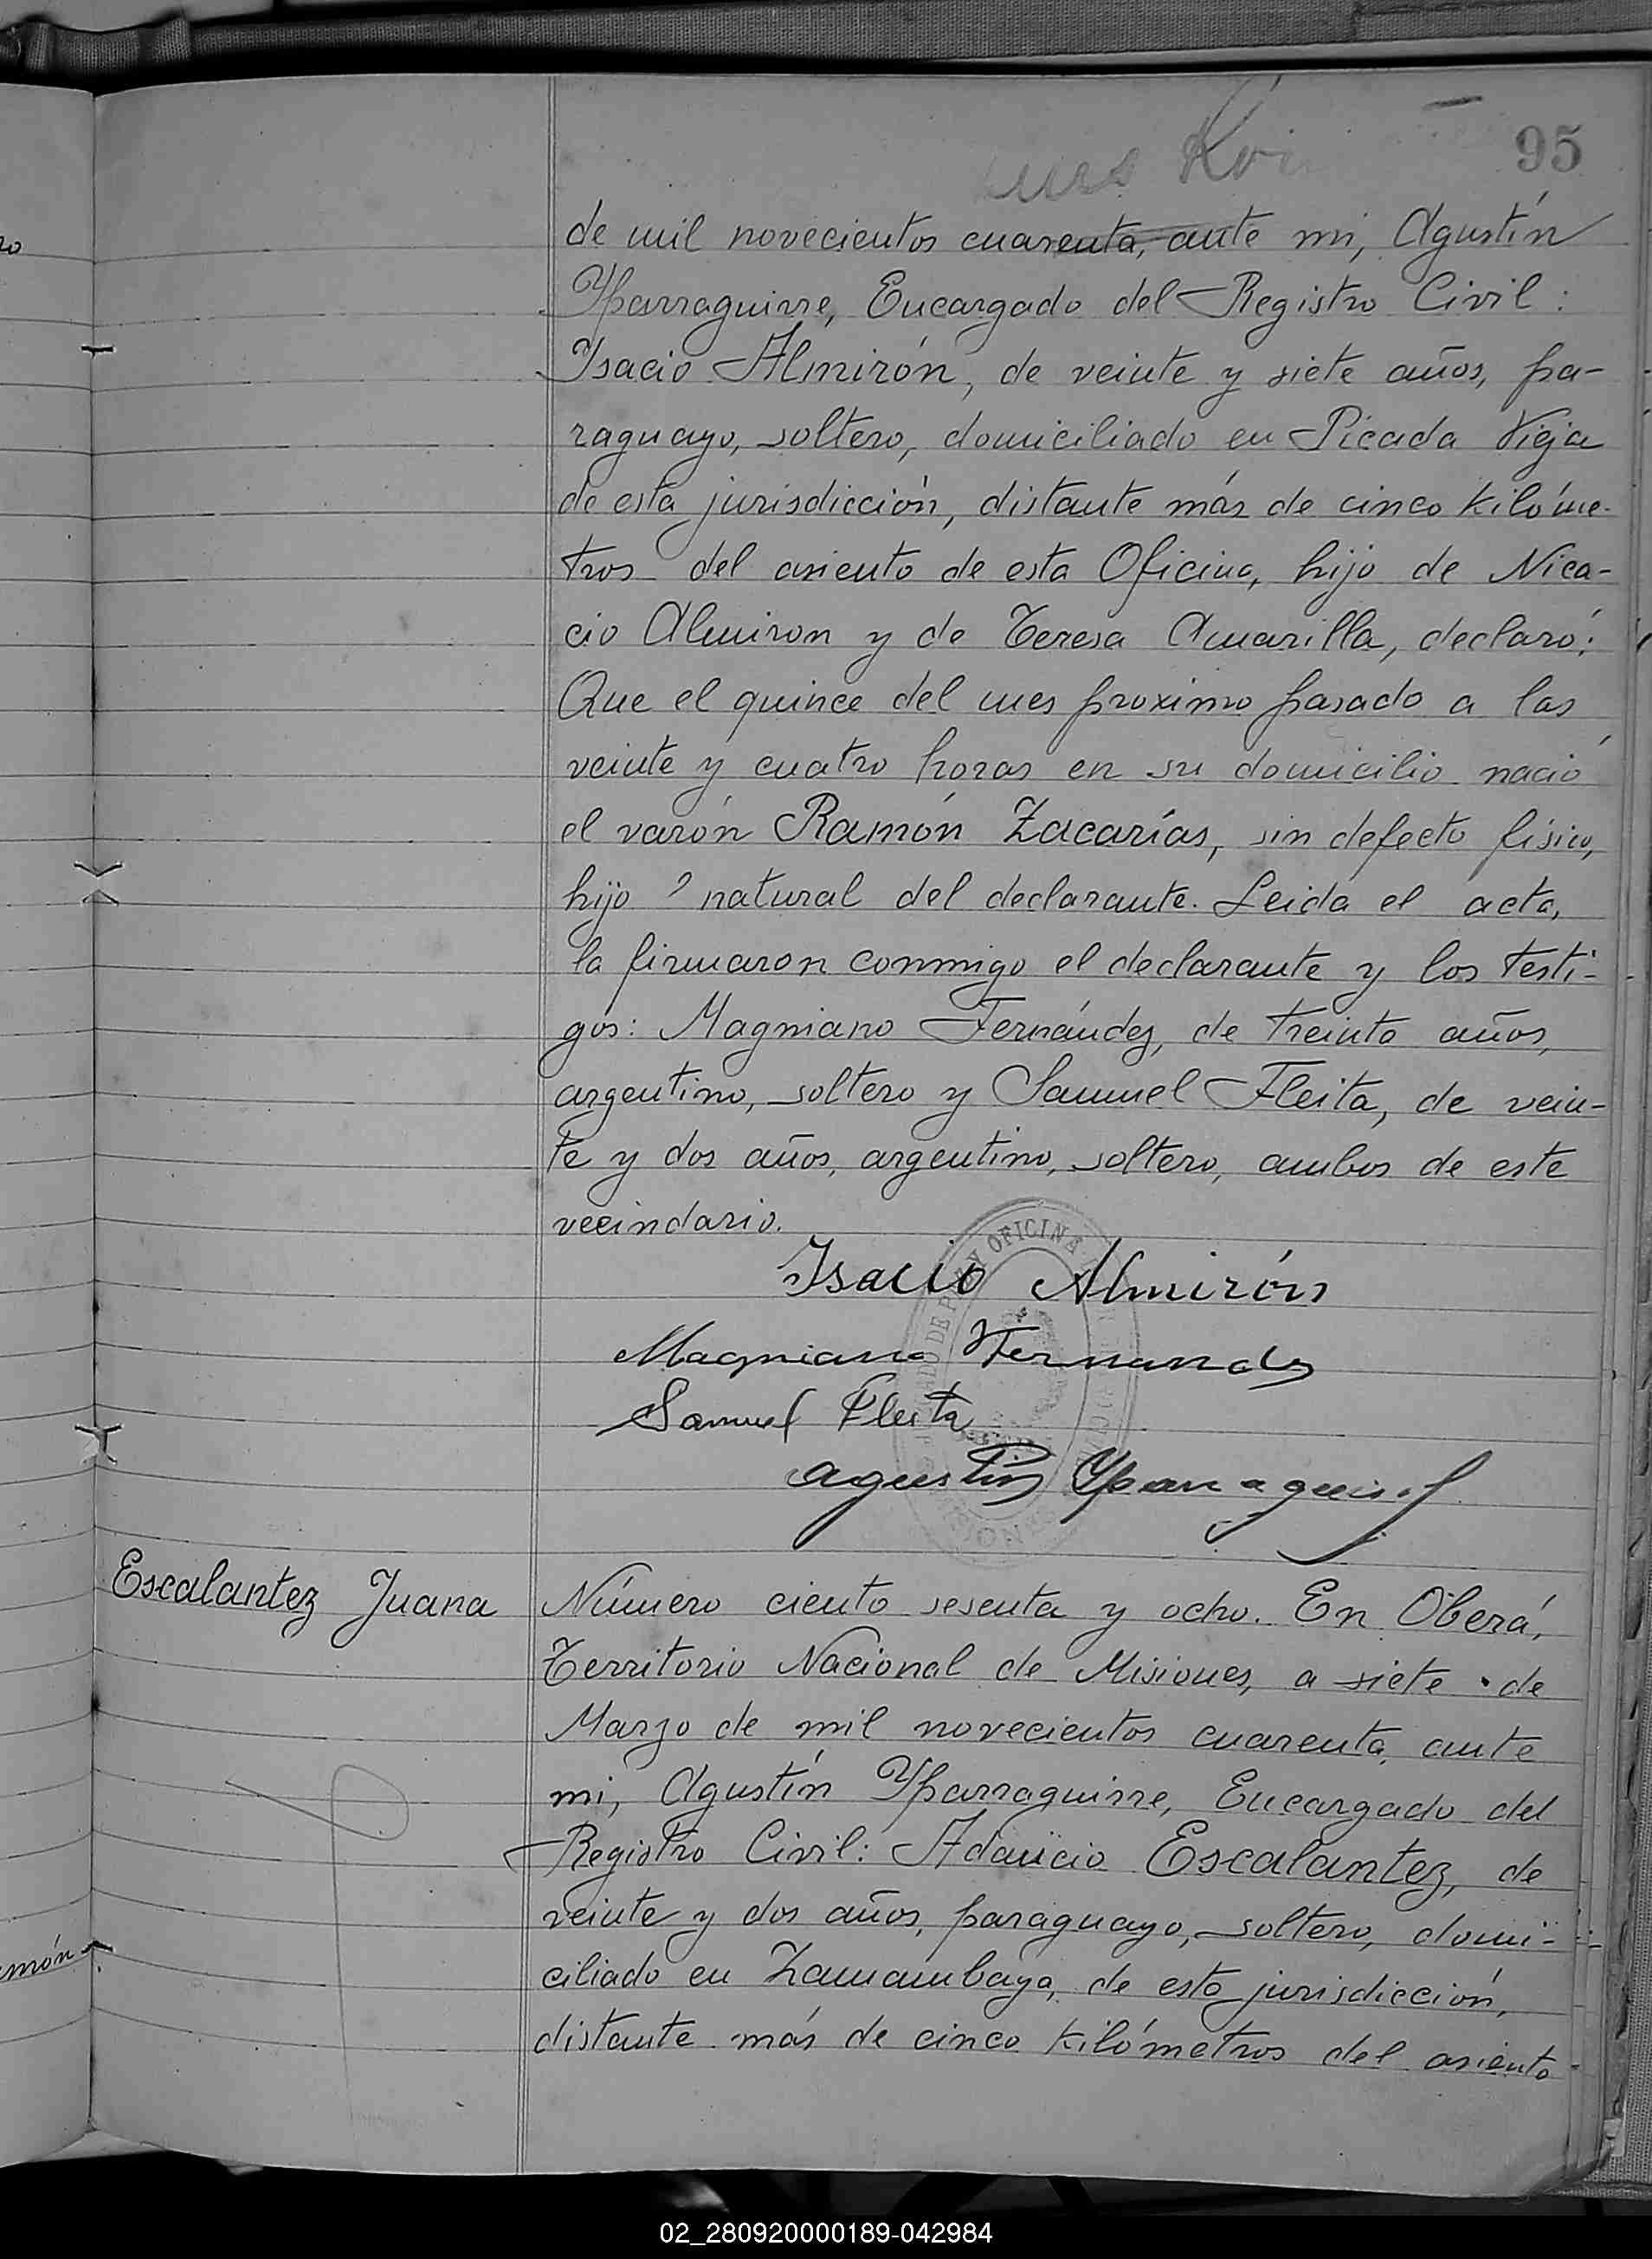 95
de mil novecientos cuarenta, ante mi, Agustín
Yparraguirre, Encargado del Registro Civil:
Isacio Almirón, de veinte y siete años, pa-
raguayo, soltero, domiciliado en Picada Vieja
de esta jurisdicción, distante más de cinco kilóme-
tros del asiento de esta Oficina, hijo de Nica-
cio Almiron y de Teresa Amarilla, declaró:
Que el quince del mes proximo pasado a las
veinte y cuatro horas en su domicilio nació
el varón Ramón Zacarías, sin defecto físico,
hijo natural del declarante. Leida el acta,
la firmaron conmigo el declarante y los testi-
gos: Magniano Fernández, de treinta años,
argentino, soltero y Samuel Fleita, de vein-
te y dos años, argentino, soltero, ambos de este
vecindario.
OFICINA
Isacio Almirón
Magniano Fernandez
Samuel Fleita
Agustin Yparraguirre
Escalantez Juana
Número ciento sesenta y ocho. En Oberá,
Territorio Nacional de Misiones, a siete de
Marzo de mil novecientos cuarenta, ante
mi, Agustín Yparraguirre, Encargado del
Registro Civil: Adaucio Escalantez, de
veinte y dos años, paraguayo, soltero, domi-
ciliado en Zamambaya, de esta jurisdicción,
distante más de cinco kilómetros del asiento
món
02_280920000189-042984